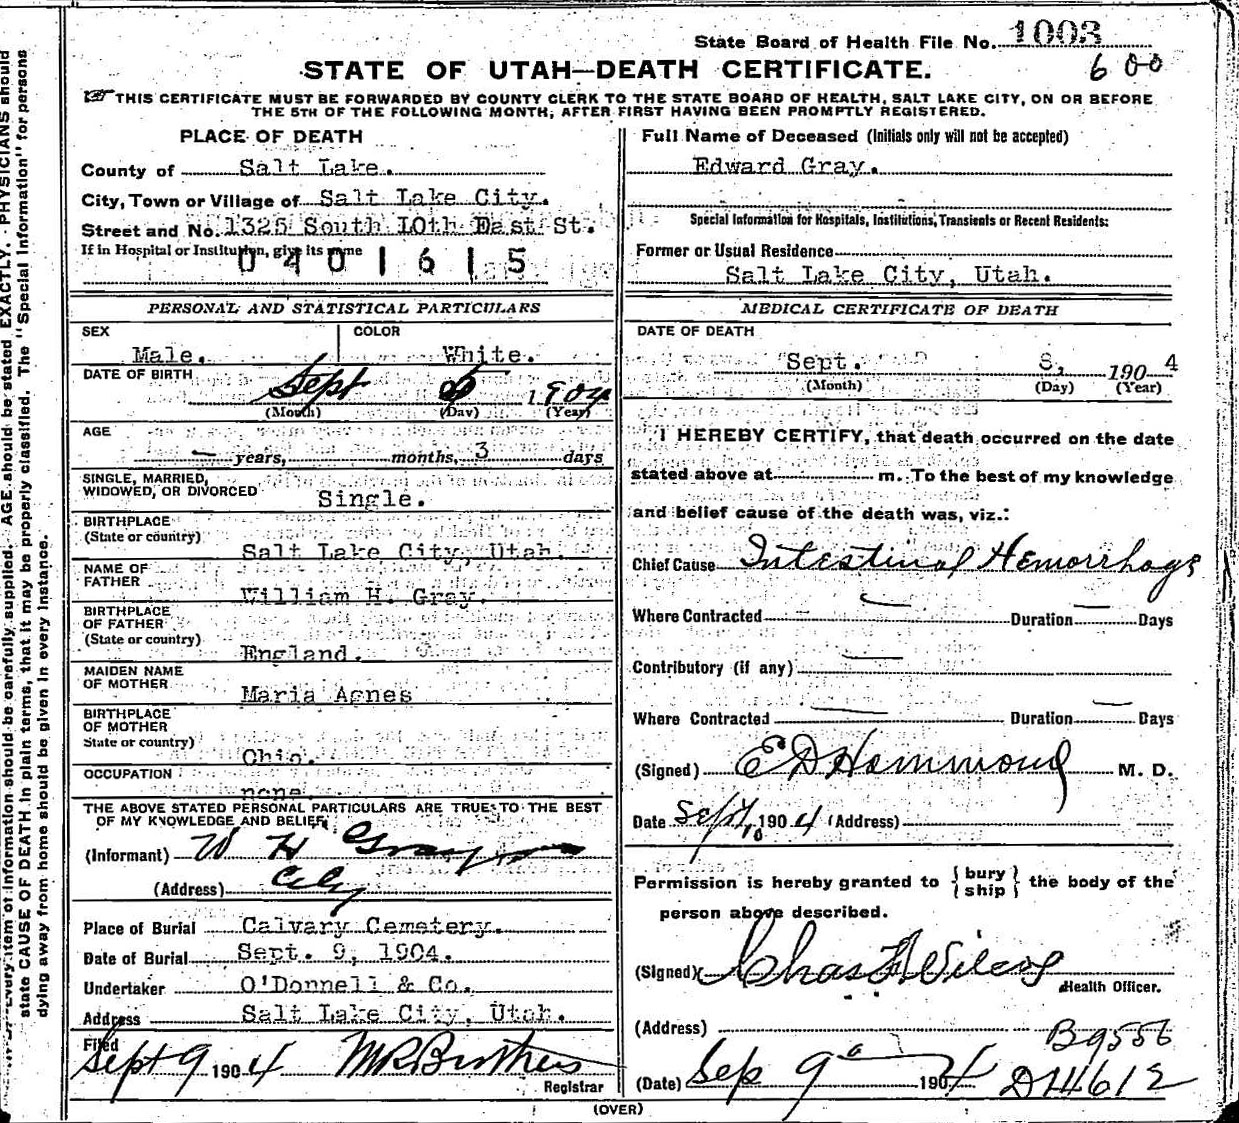 State Board of Health File No. 1003
600
STATE OF UTAH—DEATH CERTIFICATE.
THIS CERTIFICATE MUST BE FORWARDED BY COUNTY CLERK TO THE STATE BOARD OF HEALTH, SALT LAKE CITY, ON OR BEFORE
THE 5TH OF THE FOLLOWING MONTH, AFTER FIRST HAVING BEEN PROMPTLY REGISTERED.
PLACE OF DEATH
County of Salt Lake.
City, Town or Village of Salt Lake City.
Street and No. 1325 South 10th East St.
If in Hospital or Institution, give its name
0401615
PERSONAL AND STATISTICAL PARTICULARS
SEX COLOR
Male. White.
DATE OF BIRTH
Sept 6 1904
(Month) (Day) (Year)
AGE
— years, months, 3 days
SINGLE, MARRIED,
WIDOWED, OR DIVORCED Single.
BIRTHPLACE
(State or country) Salt Lake City, Utah.
NAME OF
FATHER William H. Gray.
BIRTHPLACE
OF FATHER
(State or country) England.
MAIDEN NAME
OF MOTHER Maria Agnes
BIRTHPLACE
OF MOTHER
State or country) Ohio.
OCCUPATION none.
THE ABOVE STATED PERSONAL PARTICULARS ARE TRUE TO THE BEST
OF MY KNOWLEDGE AND BELIEF
(Informant) W H Gray
(Address) City
Place of Burial Calvary Cemetery.
Date of Burial Sept. 9, 1904.
Undertaker O'Donnell & Co.
Address Salt Lake City, Utah.
Filed
Sept 9 1904
Registrar
Full Name of Deceased (Initials only will not be accepted)
Edward Gray.
Special Information for Hospitals, Institutions, Transients or Recent Residents:
Former or Usual Residence
Salt Lake City, Utah.
MEDICAL CERTIFICATE OF DEATH
DATE OF DEATH
Sept. 8, 1904
(Month) (Day) (Year)
I HEREBY CERTIFY, that death occurred on the date
stated above at m. To the best of my knowledge
and belief cause of the death was, viz.:
Chief Cause Intestinal Hemorrhage
Where Contracted — Duration — Days
Contributory (if any) —
Where Contracted — Duration — Days
(Signed) E D Hammond M. D.
Date Sept 10 1904 (Address)
Permission is hereby granted to { bury
ship } the body of the
person above described.
(Signed) Chas F Wilcox
Health Officer.
(Address) B9556
(Date) Sep 9 1904 D14612
(OVER)
Every item of information should be carefully supplied. AGE should be stated EXACTLY. PHYSICIANS should
state CAUSE OF DEATH in plain terms, that it may be properly classified. The "Special Information" for persons
dying away from home should be given in every instance.